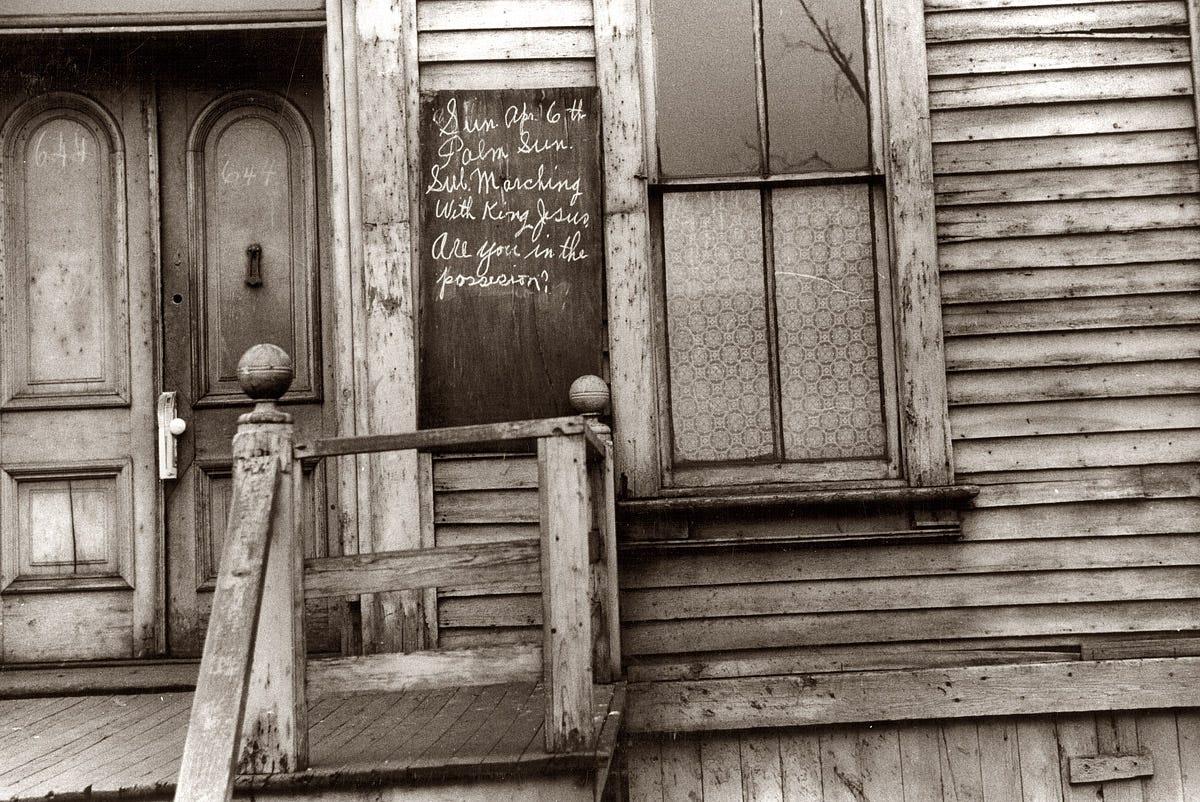 644
644
Sun. Apr. 6th
Palm Sun.
Sub. Marching
With King Jesus
Are you in the
possesion?